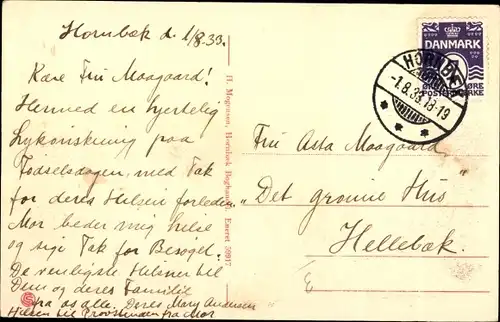 Hornbæk d. 1/8.33.
Kære Fru Maagaard!
Hermed en hjertelig
Lykønskning paa
Fødselsdagen, med Tak
for deres Hilsen forleden.
Mor beder mig hilse
og sige Tak for Besøget.
De venligste Hilsner til
Dem og deres Familie
fra os alle. Deres Mary Andersen
Hilsen til Provstinden fra Mor
H. Mogensen, Hornbæk Boghandel. Eneret 30917
DANMARK
HORNBÆK
-1.8.33.18-19
Fru Asta Maagaard
"Det grønne Hus"
Hellebæk.